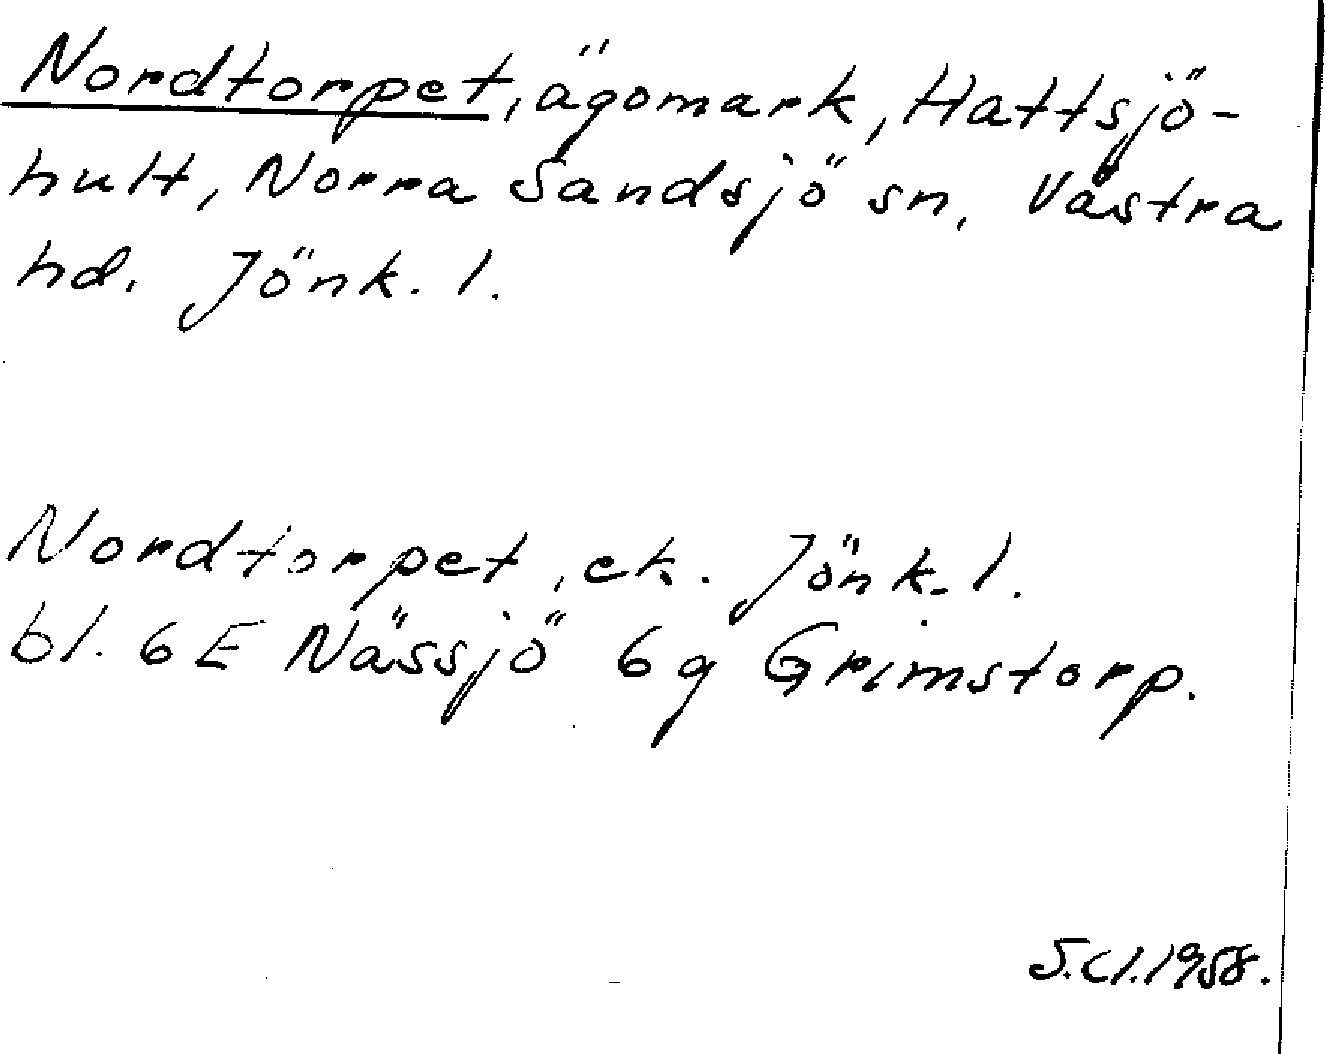 Nordtorpet, ägomark, Hattsjö-
hult, Norra Sandsjö sn, Västra
hd. Jönk. l.
Nordtorpet, ek. Jönk. l.
bl. 6E Nässjö 6g Grimstorp.
S.Cl.1958.